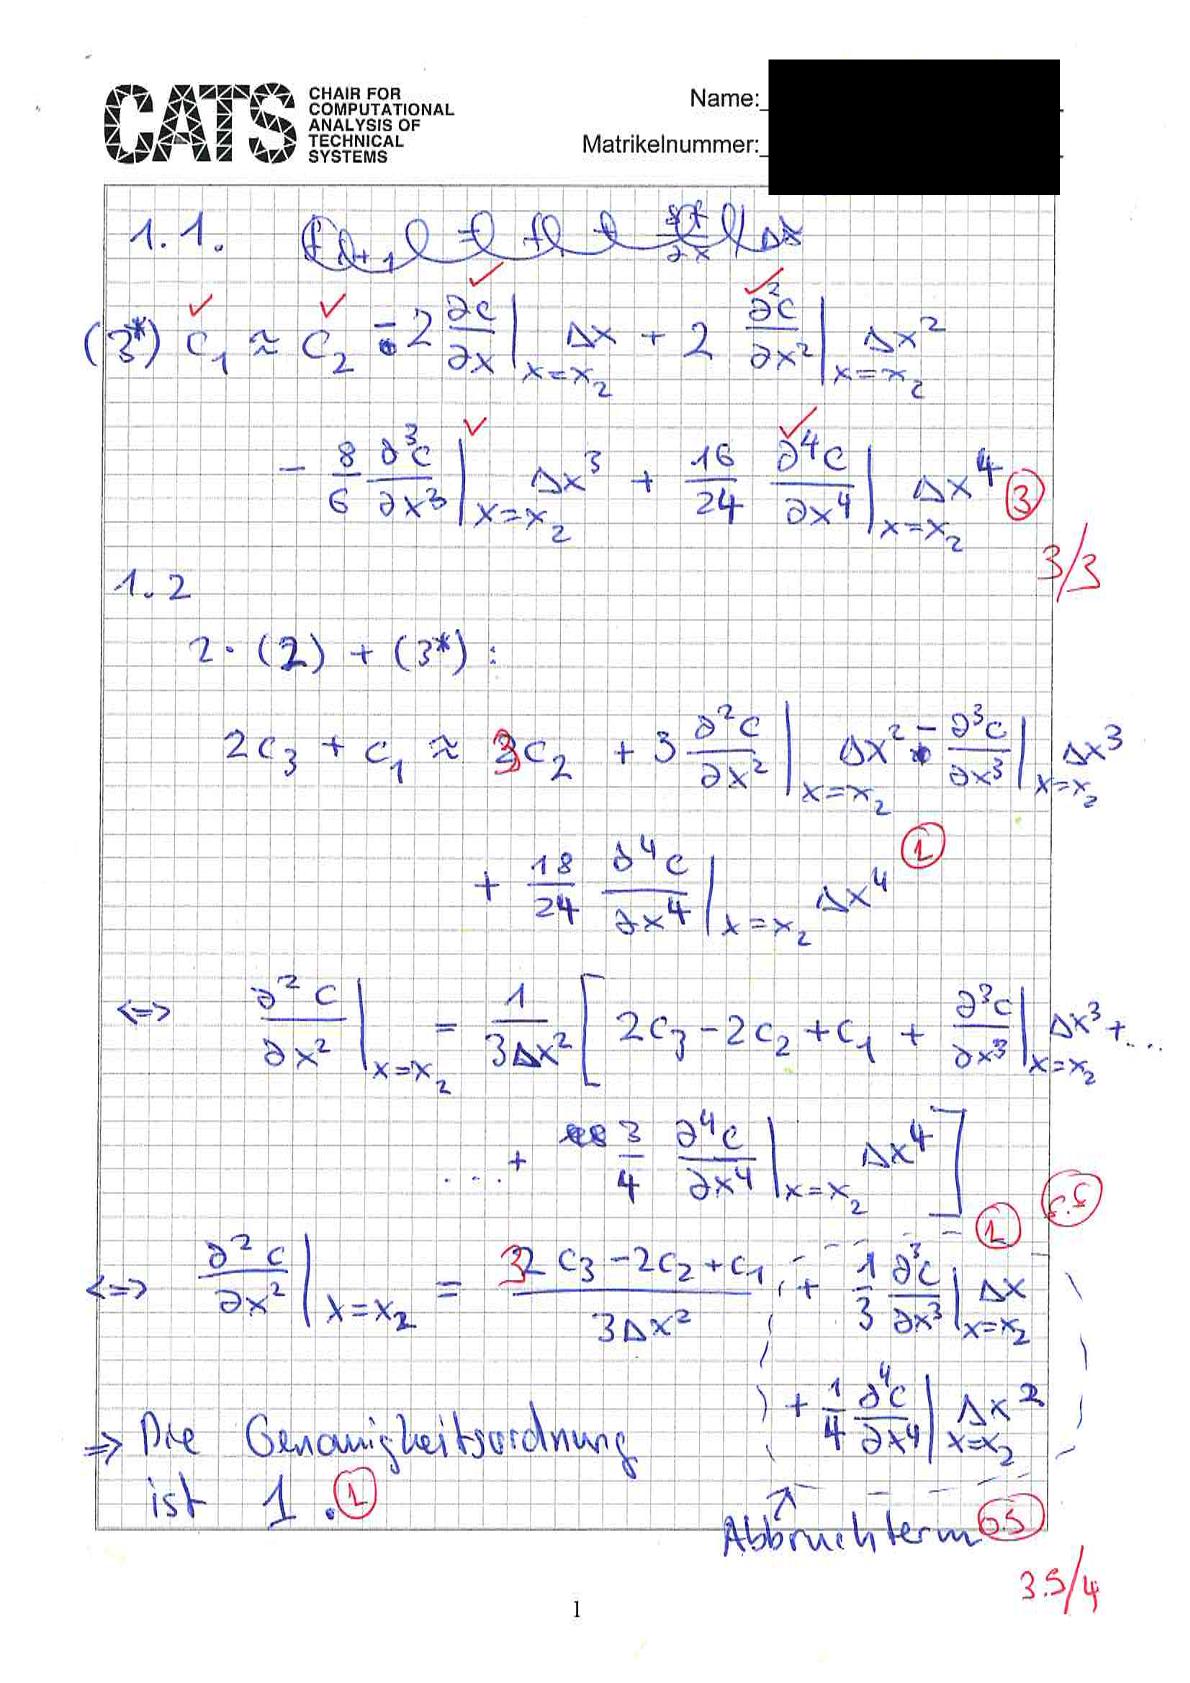 CATS CHAIR FOR
COMPUTATIONAL
ANALYSIS OF
TECHNICAL
SYSTEMS
Name:
Matrikelnummer:
1.1.
(3*) c₁ ≈ c₂ - 2 ∂c/∂x |x=x₂ Δx + 2 ∂²c/∂x² |x=x₂ Δx²
- 8/6 ∂³c/∂x³ |x=x₂ Δx³ + 16/24 ∂⁴c/∂x⁴ |x=x₂ Δx⁴ 3
3/3
1.2
2·(2) + (3*):
2c₃ + c₁ ≈ 3c₂ + 3 ∂²c/∂x² |x=x₂ Δx² - ∂³c/∂x³ |x=x₂ Δx³
+ 18/24 ∂⁴c/∂x⁴ |x=x₂ Δx⁴ 1
<=> ∂²c/∂x² |x=x₂ = 1/3Δx² [ 2c₃ - 2c₂ + c₁ + ∂³c/∂x³ |x=x₂ Δx³ + ...
...+ 3/4 ∂⁴c/∂x⁴ |x=x₂ Δx⁴ ]
<=> ∂²c/∂x² |x=x₂ = 2c₃ - 32c₂ + c₁ / 3Δx² + 1/3 ∂³c/∂x³ |x=x₂ Δx 1
+ 1/4 ∂⁴c/∂x⁴ |x=x₂ Δx²
=> Die Genauigkeitsordnung
ist 1. 1
Abbruchterm 0.5
3.5/4
1